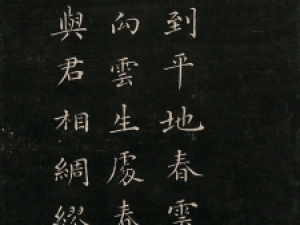 到平地春雲
向雲生處春
與君相綢繆